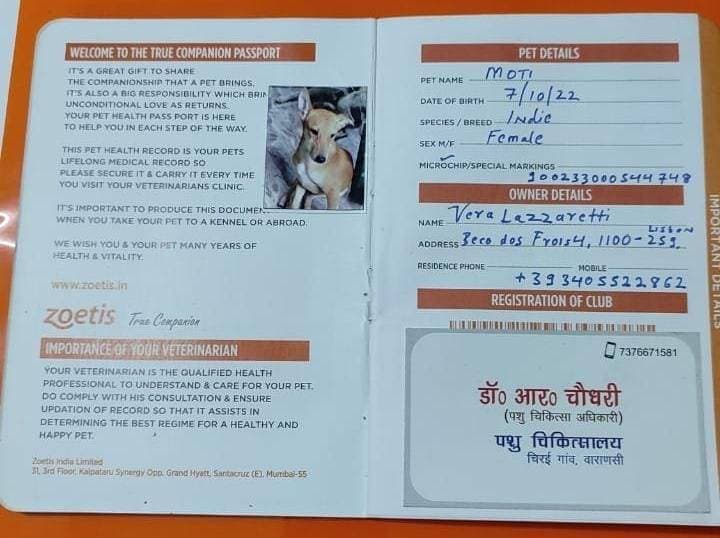 WELCOME TO THE TRUE COMPANION PASSPORT
IT'S A GREAT GIFT TO SHARE
THE COMPANIONSHIP THAT A PET BRINGS,
IT'S ALSO A BIG RESPONSIBILITY WHICH BRIN
UNCONDITIONAL LOVE AS RETURNS.
YOUR PET HEALTH PASS PORT IS HERE
TO HELP YOU IN EACH STEP OF THE WAY.
THIS PET HEALTH RECORD IS YOUR PETS
LIFELONG MEDICAL RECORD SO
PLEASE SECURE IT & CARRY IT EVERY TIME
YOU VISIT YOUR VETERINARIANS CLINIC.
IT'S IMPORTANT TO PRODUCE THIS DOCUMEN
WHEN YOU TAKE YOUR PET TO A KENNEL OR ABROAD.
WE WISH YOU & YOUR PET MANY YEARS OF
HEALTH & VITALITY.
www.zoetis.in
zoetis True Companion
IMPORTANCE OF YOUR VETERINARIAN
YOUR VETERINARIAN IS THE QUALIFIED HEALTH
PROFESSIONAL TO UNDERSTAND & CARE FOR YOUR PET.
DO COMPLY WITH HIS CONSULTATION & ENSURE
UPDATION OF RECORD SO THAT IT ASSISTS IN
DETERMINING THE BEST REGIME FOR A HEALTHY AND
HAPPY PET.
Zoetis India Limited
31, 3rd Floor, Kalpataru Synergy Opp. Grand Hyatt, Santacruz (E), Mumbai-55
PET DETAILS
PET NAME MOTI
DATE OF BIRTH 7/10/22
SPECIES / BREED Indie
SEX M/F Female
MICROCHIP/SPECIAL MARKINGS
900233000544748
OWNER DETAILS
NAME Vera Lazzaretti
LISBON
ADDRESS Beco dos Frois 4, 1100-259.
RESIDENCE PHONE MOBILE
+393405522862
REGISTRATION OF CLUB
7376671581
डॉ० आर० चौधरी
(पशु चिकित्सा अधिकारी)
पशु चिकित्सालय
चिरई गांव, वाराणसी
IMPORTANT DETAILS